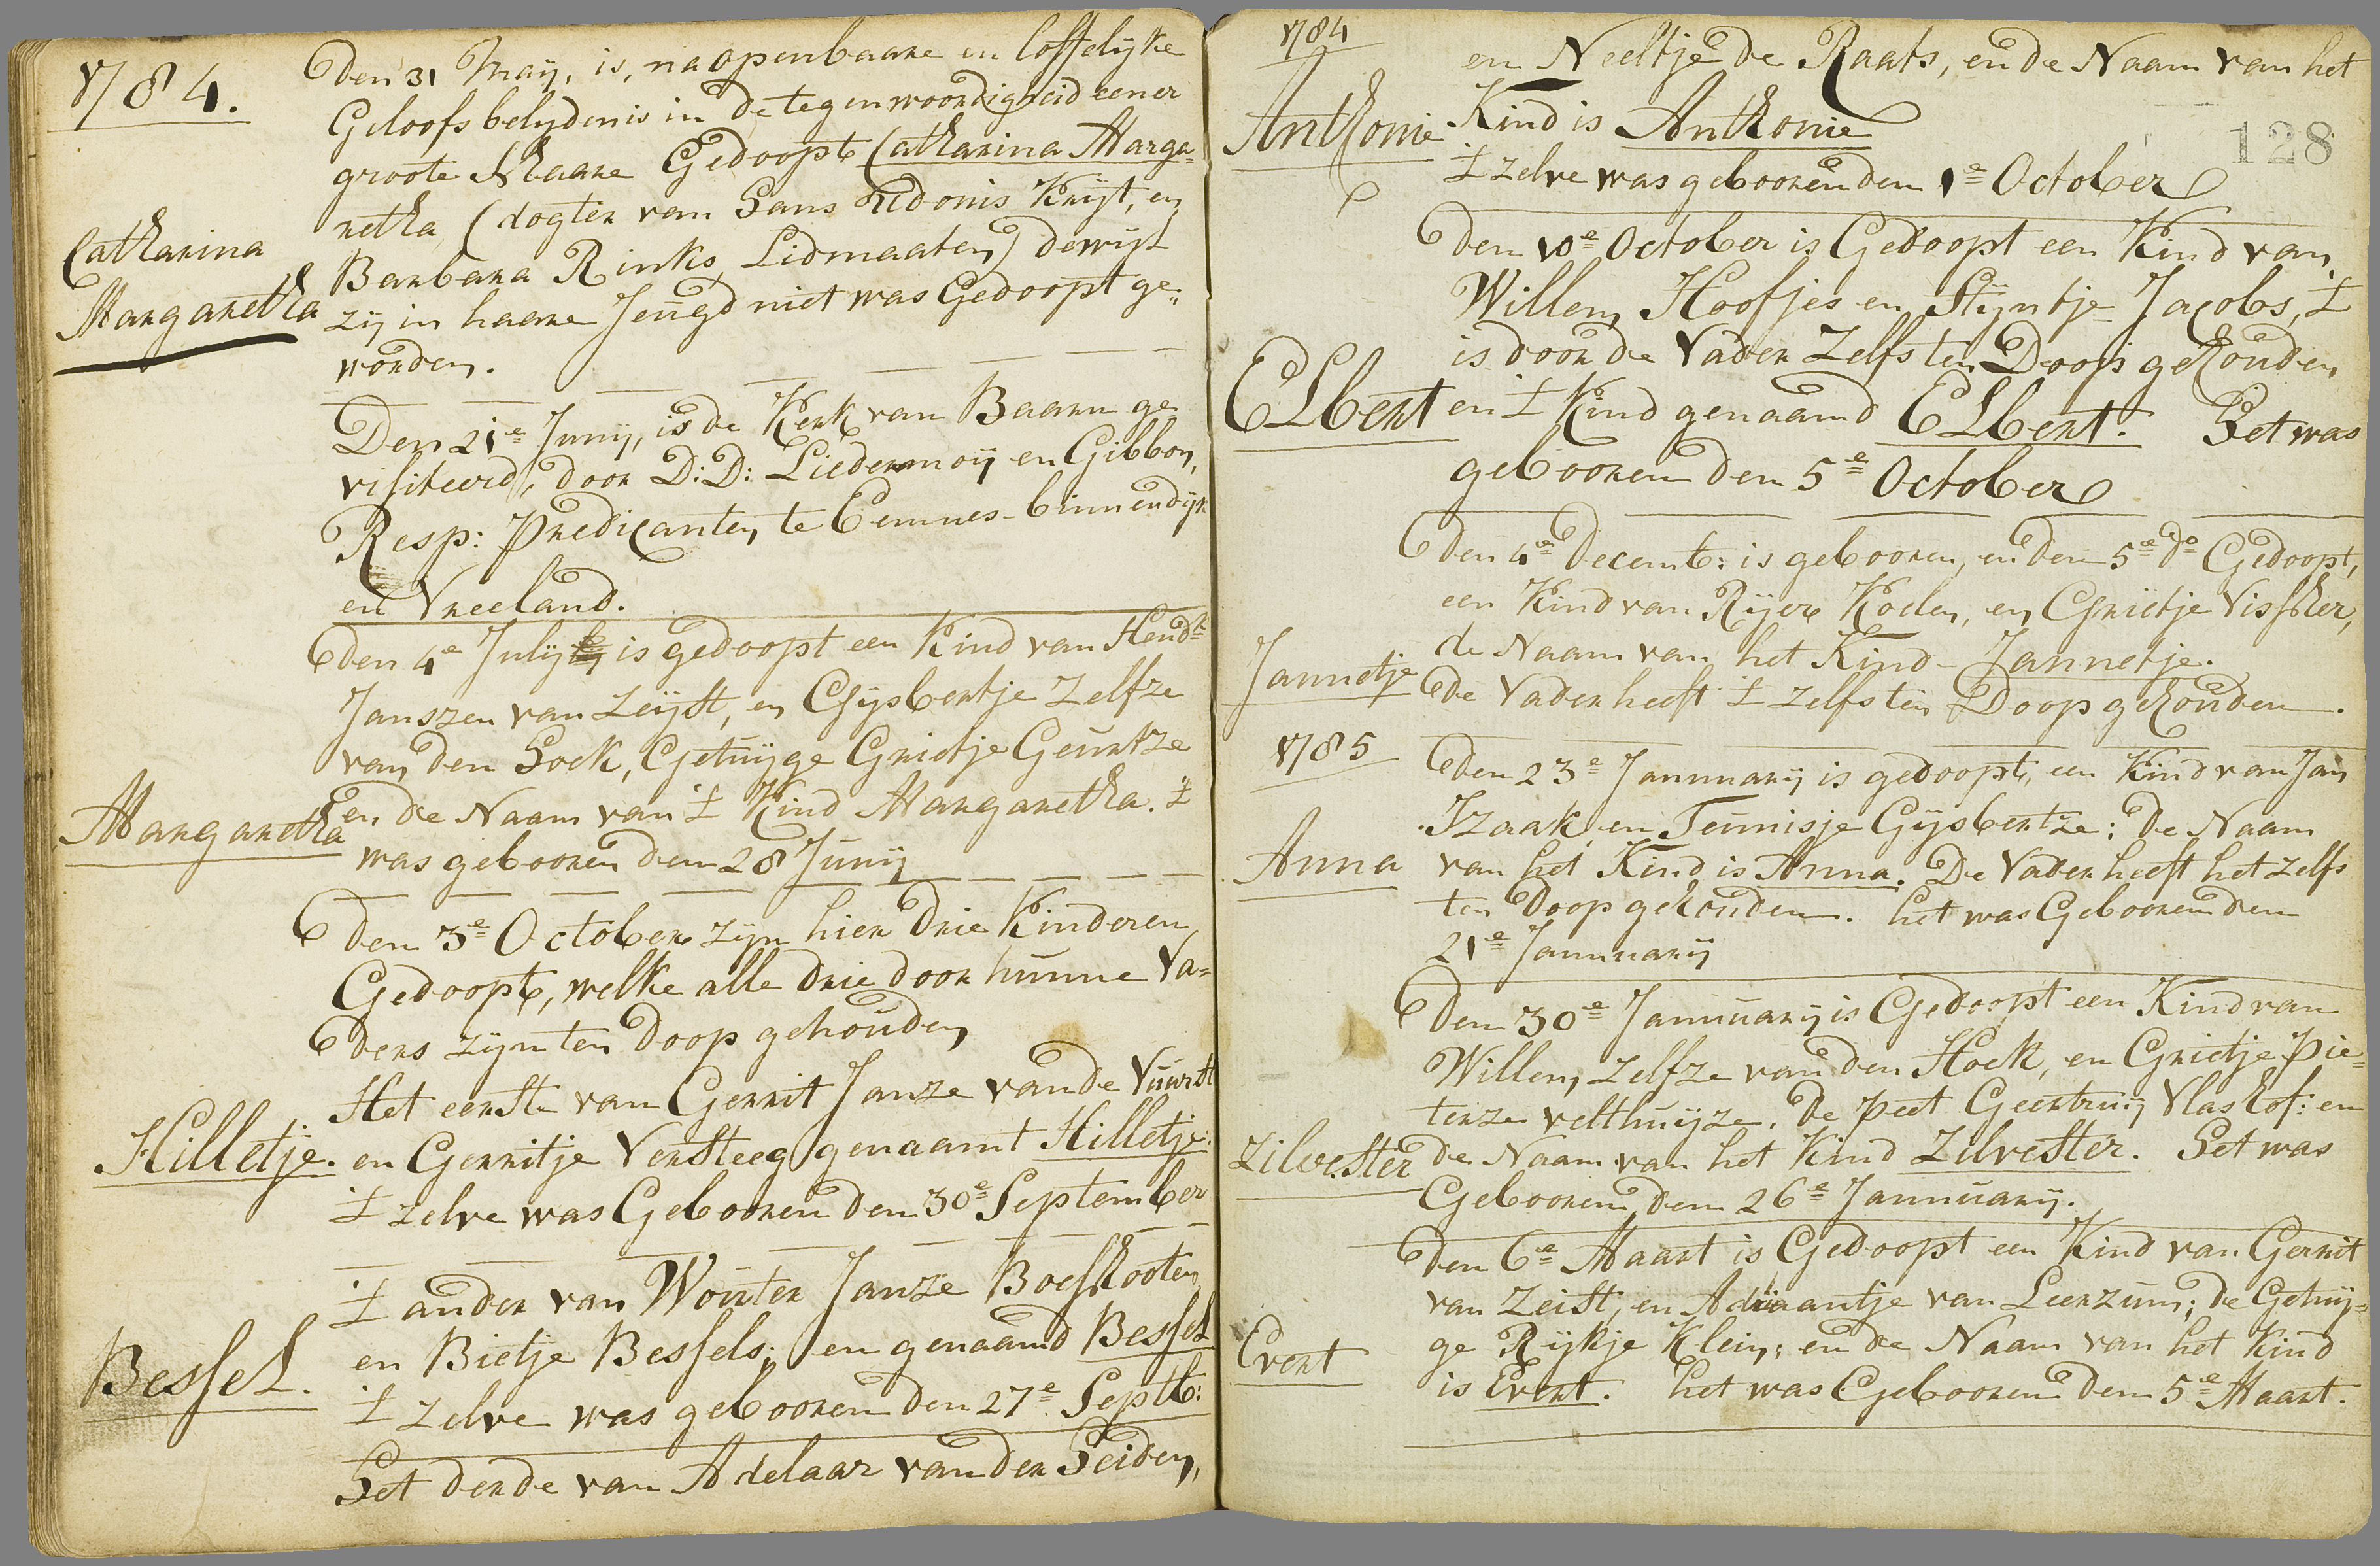 1784.
Den 31 Maij, is, na openbaare en loffelijke
Geloofs belydenis in de tegenwoordigheid eener
groote Schaare Gedoopt Catharina Marga=
retha (dogter van Hans Udonis Krijt, en
Catharina
Margaretha
Barbara Rinks, Lidmaaten) dewijl
zij in haare Jeugd niet was Gedoopt ge„
worden.
Den 21e Junij, is de Kerk van Baarn ge
visiteerd, door D:D: Liedermoij en Gibbon,
Resp: Predicanten te Eemnes-binnendijk
en Vreeland.
den 4e Julij is gedoopt een Kind van Hendk
Janszen van Zeijst, en Gijsbertje Zelfze
van den Hoek, Getuijge Grietje Geurtze
Margaretha
en de Naam van 't Kind Margaretha. 't
was gebooren den 28 Junij
den 3e October zijn hier drie Kinderen
Gedoopt, welke alle drie door hunne Va=
ders zijn ten doop gehouden
Het eerste van Gerrit Janze van de Vuurst
Hilletje.
en Gerritje Versteeg genaamt Hilletje.
't zelve was Gebooren den 30e September
't ander van Wouter Janze Boeschooten
Bessel.
en Bietje Bessels; en genaamd Bessel
't zelve was gebooren den 27e Septb:
Het derde van Adelaar van der Heiden,
1784
en Neeltje de Raats, en de Naam van het
Anthonie
Kind is Anthonie
128
't zelve was gebooren den 1e October
den 10e October is Gedoopt een Kind van
Willem Hoofjes en Stijntje Jacobs, 't
is door de Vader Zelfs ten Doop gehouden
Elbert
en 't Kind genaamd Elbert. Het was
gebooren den 5e October
den 4e Decemb: is gebooren, en den 5e do Gedoopt,
een Kind van Rijer Koelen, en Grietje Visscher,
Jannetje
de Naam van het Kind - Jannetje.
de Vader heeft 't zelfs ten Doop gehouden.
1785
den 23e Jannuarij is gedoopt, een Kind van Jan
Izaak, en Teunisje Gijsbertze; de Naam
Anna
van het Kind is Anna. De Vader heeft het zelfs
ten Doop gehouden. het was Gebooren den
21e Jannuarij
den 30e Jannuarij is Gedoopt een Kind van
Willem Zelfze van den Hoek, en Grietje Pie=
terze velthuijze. De peet Geertruij Vlashof: en
Zilvester
de Naam van het Kind Zilvester. Het was
Gebooren den 26e Jannuarij.
den 6e Maart is Gedoopt een Kind van Gerrit
van Zeist, en Adriaantje van Leerzum; de Getuij=
Evert
ge Rijkje Klein; en de Naam van het Kind
is Evert. het was Gebooren den 5e Maart.